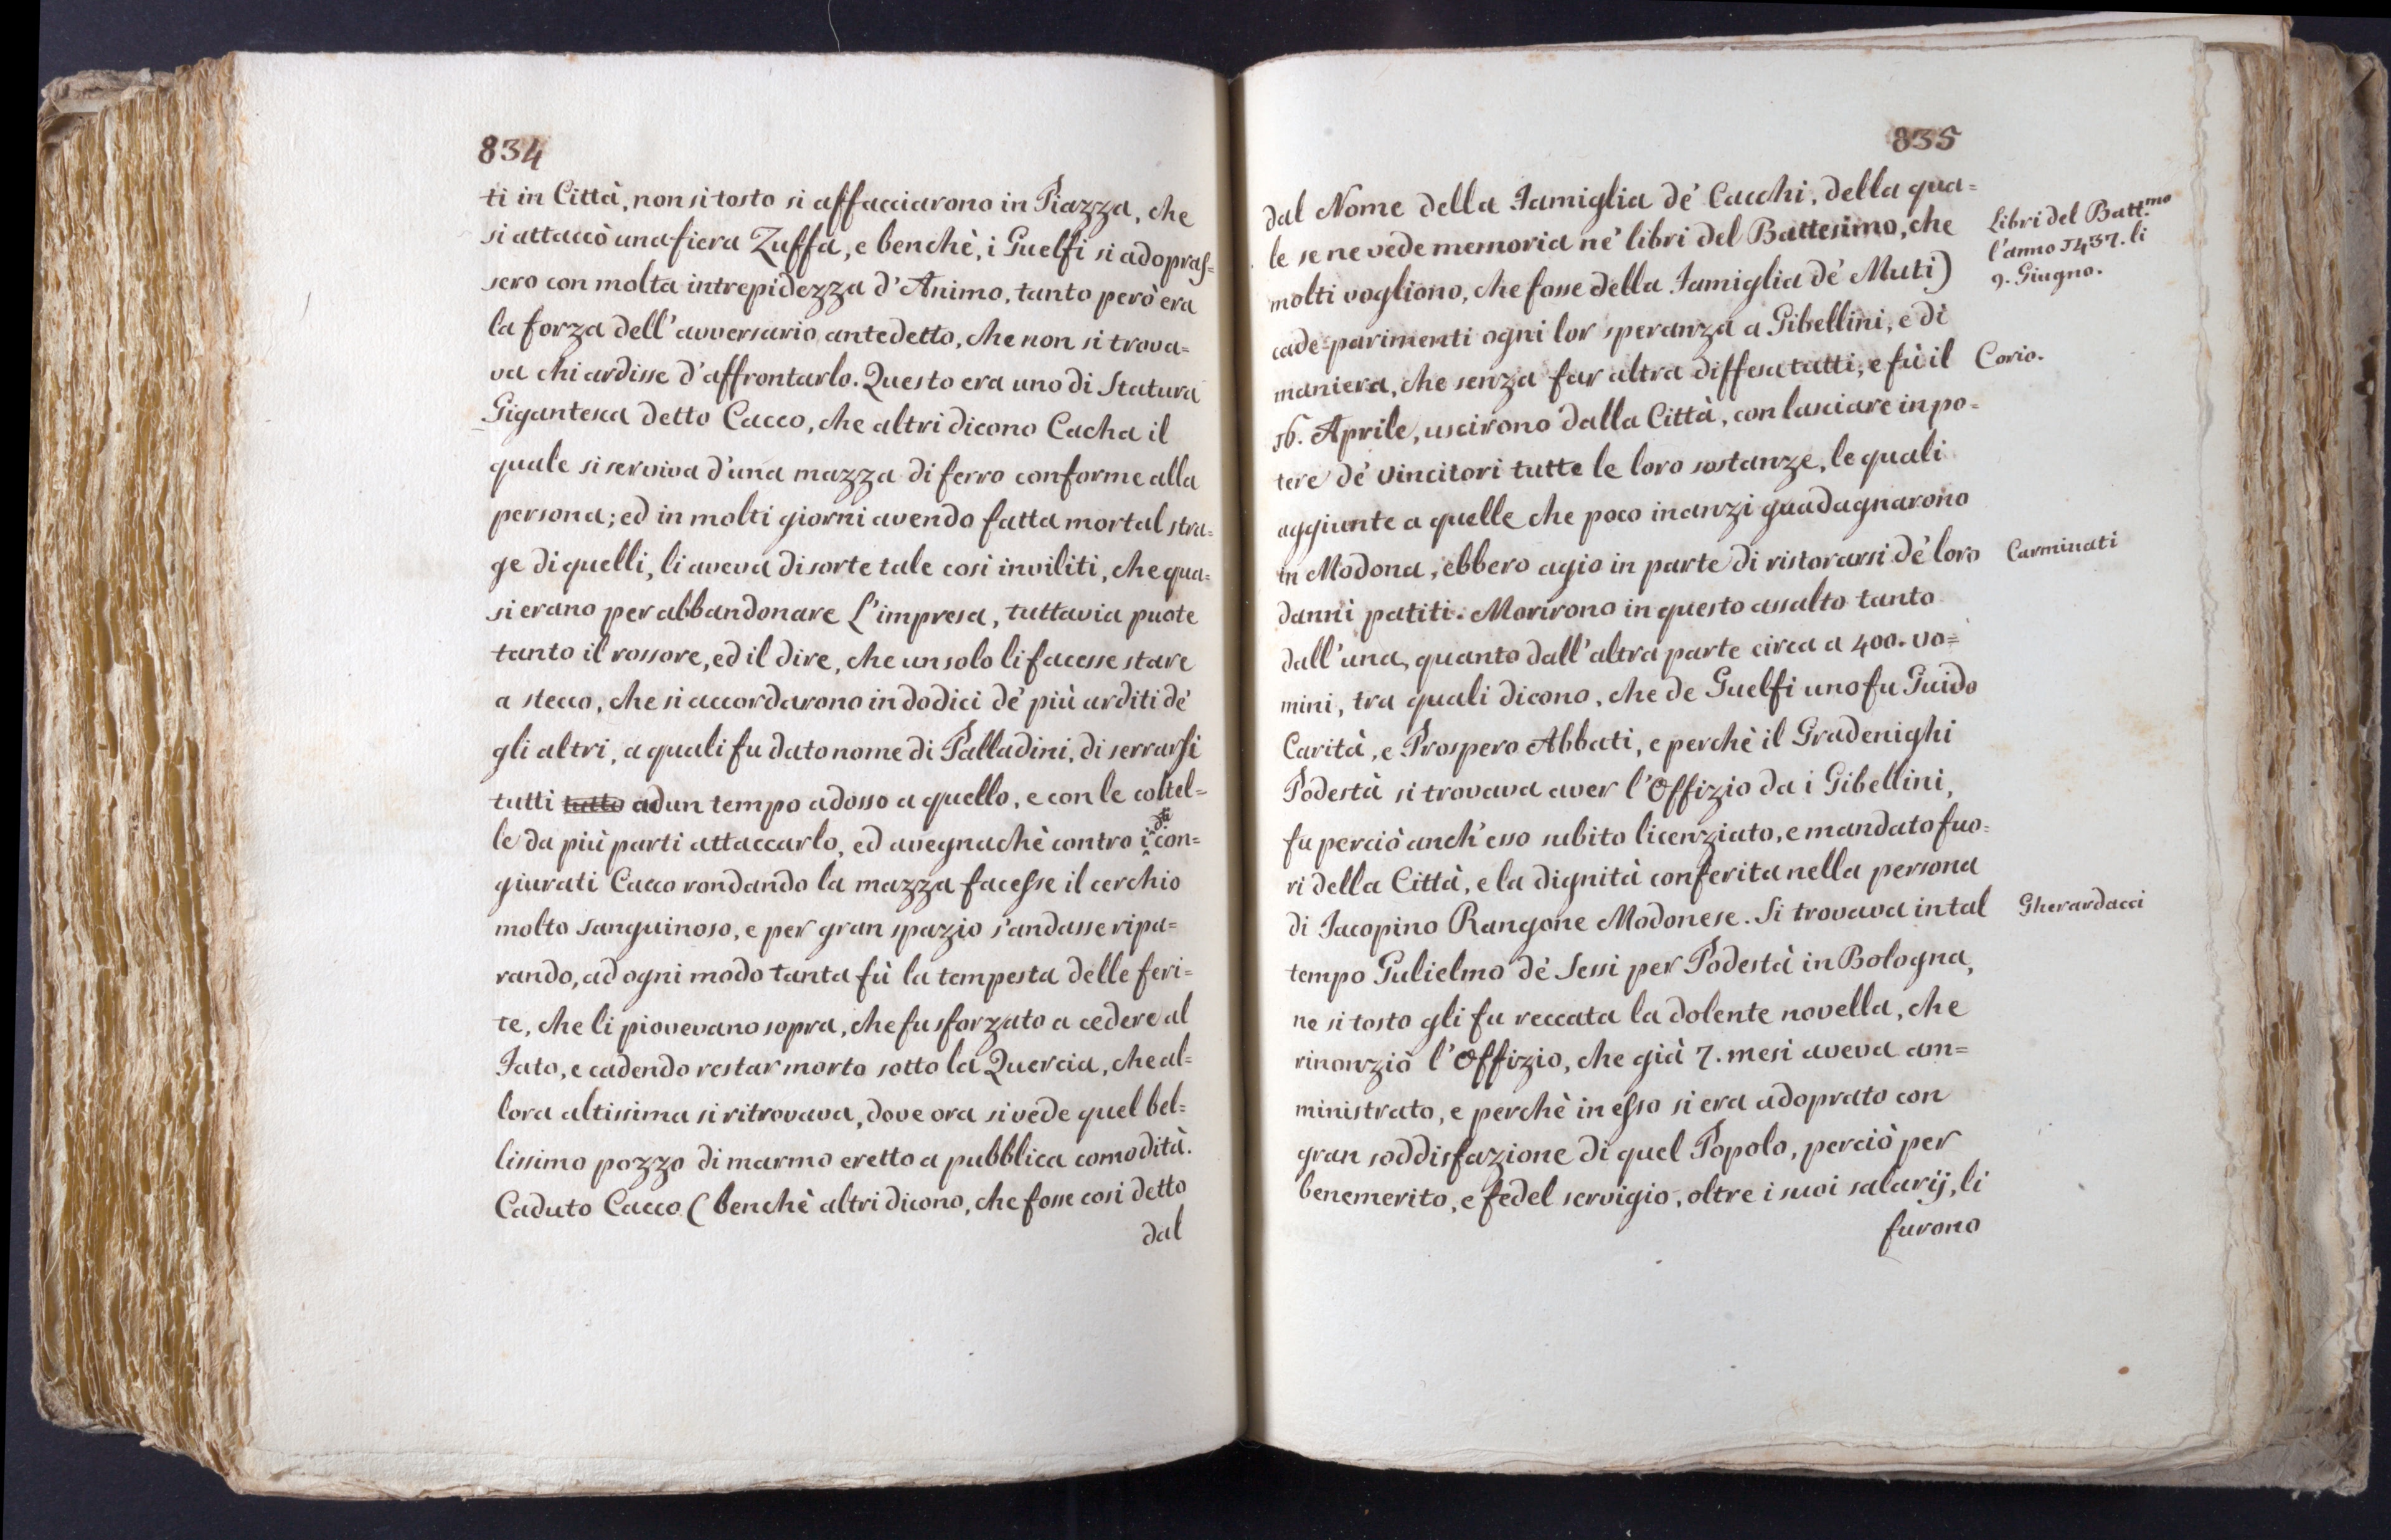 834
ti in Città, non si tosto si affacciarono in Piazza, che
si attaccò una fiera Zuffa, e benchè, i Guelfi si adopras=
sero con molta intrepidezza d'Animo, tanto però era
la forza dell'avversario antedetto, che non si trova=
va chi ardisse d'affrontarlo. Questo era uno di Statura
Gigantesca detto Cacco, che altri dicono Cacha il
quale si serviva d'una mazza di ferro conforme alla
persona; ed in molti giorni avendo fatta mortal stra=
ge di quelli, li aveva di sorte tale così inviliti, che qua=
si erano per abbandonare L'impresa, tuttavia puote
tanto il rossore, ed il dire, che un solo li facesse stare
a stecco, che si accordarono in dodici de' più arditi de'
gli altri, a quali fu dato nome di Palladini, di serrarsi
tutti tutto ad un tempo adosso a quello, e con le coltel=
le da più parti attaccarlo, ed avegnachè contro i con=
giurati Cacco rondando la mazza facesse il cerchio
molto sanguinoso, e per gran spazio s'andasse ripa=
rando, ad ogni modo tanta fù la tempesta delle feri=
te, che li piovevano sopra, che fu sforzato a cedere al
Fato, e cadendo restar morto sotto la Quercia, che al=
lora altissima si ritrovava, dove ora si vede quel bel=
lissimo pozzo di marmo eretto a pubblica comodità.
Caduto Cacco (benchè altri dicono, che fosse così detto
dal
835
dal Nome della Famiglia de' Cacchi, della qua=
le se ne vede memoria ne' libri del Battesimo, che
molti vogliono, che fosse della Famiglia de' Muti)
cade parimenti ogni lor speranza a Gibellini, e di
maniera, che senza far altra diffesa tutti, e fù il
16. Aprile, uscirono dalla Città, con lasciare in po=
tere de' vincitori tutte le loro sostanze, le quali
aggiunte a quelle che poco inanzi guadagnarono
in Modona, ebbero agio in parte di ristorarsi de' loro
danni patiti. Morirono in questo assalto tanto
dall'una, quanto dall'altra parte circa a 400. uo=
mini, tra quali dicono, che de Guelfi uno fu Guido
Carità, e Prospero Abbati, e perchè il Gradenighi
Podestà si trovava aver l'Offizio da i Gibellini,
fu perciò anch'esso subito licenziato, e mandato fuo=
ri della Città, e la dignità conferita nella persona
di Iacopino Rangone Modonese. Si trovava in tal
tempo Gulielmo de' Sessi per Podestà in Bologna,
ne si tosto gli fu reccata la dolente novella, che
rinonziò l'Offizio, che già 7. mesi aveva am=
ministrato, e perchè in esso si era adoprato con
gran soddisfazione di quel Popolo, perciò per
benemerito, e fedel servigio, oltre i suoi salarij, li
furono
Libri del Batt.mo
l'anno 1437. li
9. Giugno.
Corio.
Carminati
Gherardacci